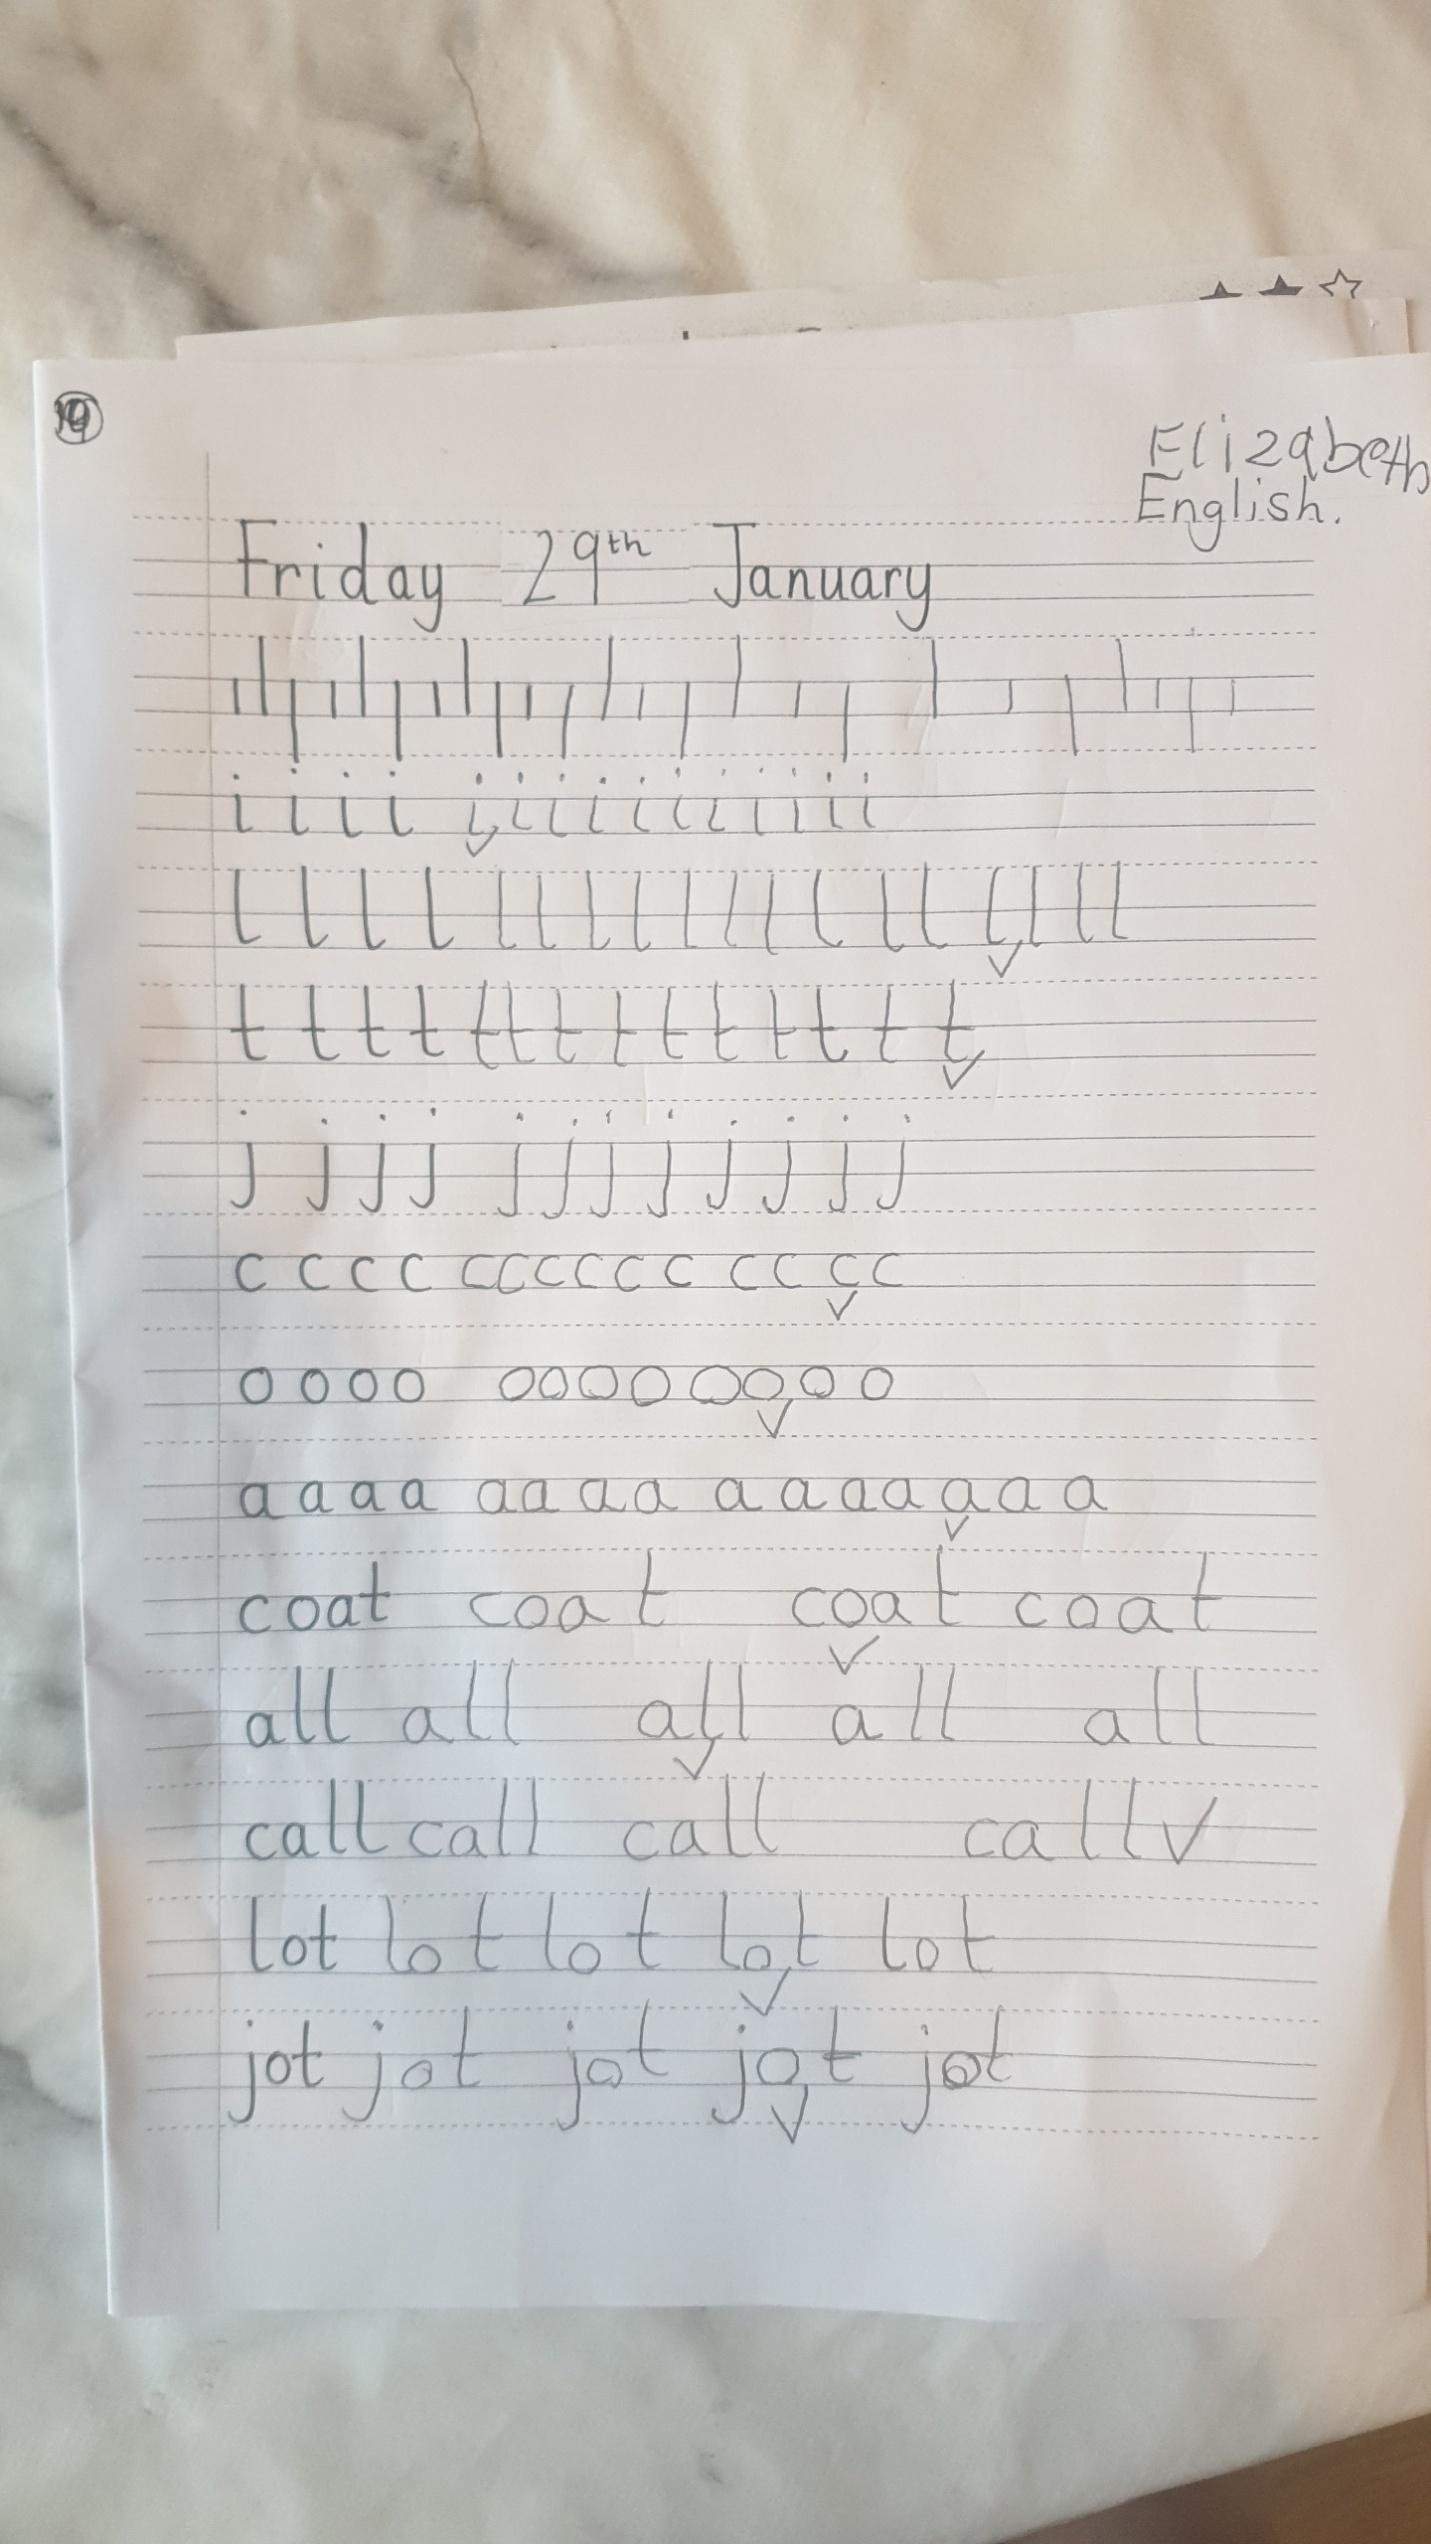 Elizabeth
English.
Friday 29th January
i i i i i i i i i i i i i i i
l l l l l l l l l l l l l l l l l l
t t t t t t t t t t t t t t
j j j j j j j j j j j j
c c c c c c c c c c c c c c
o o o o o o o o o o o o o
a a a a a a a a a a a a a a a
coat coat coat coat
all all all all all
call call call call
lot lot lot lot lot
jot jot jot jot jot